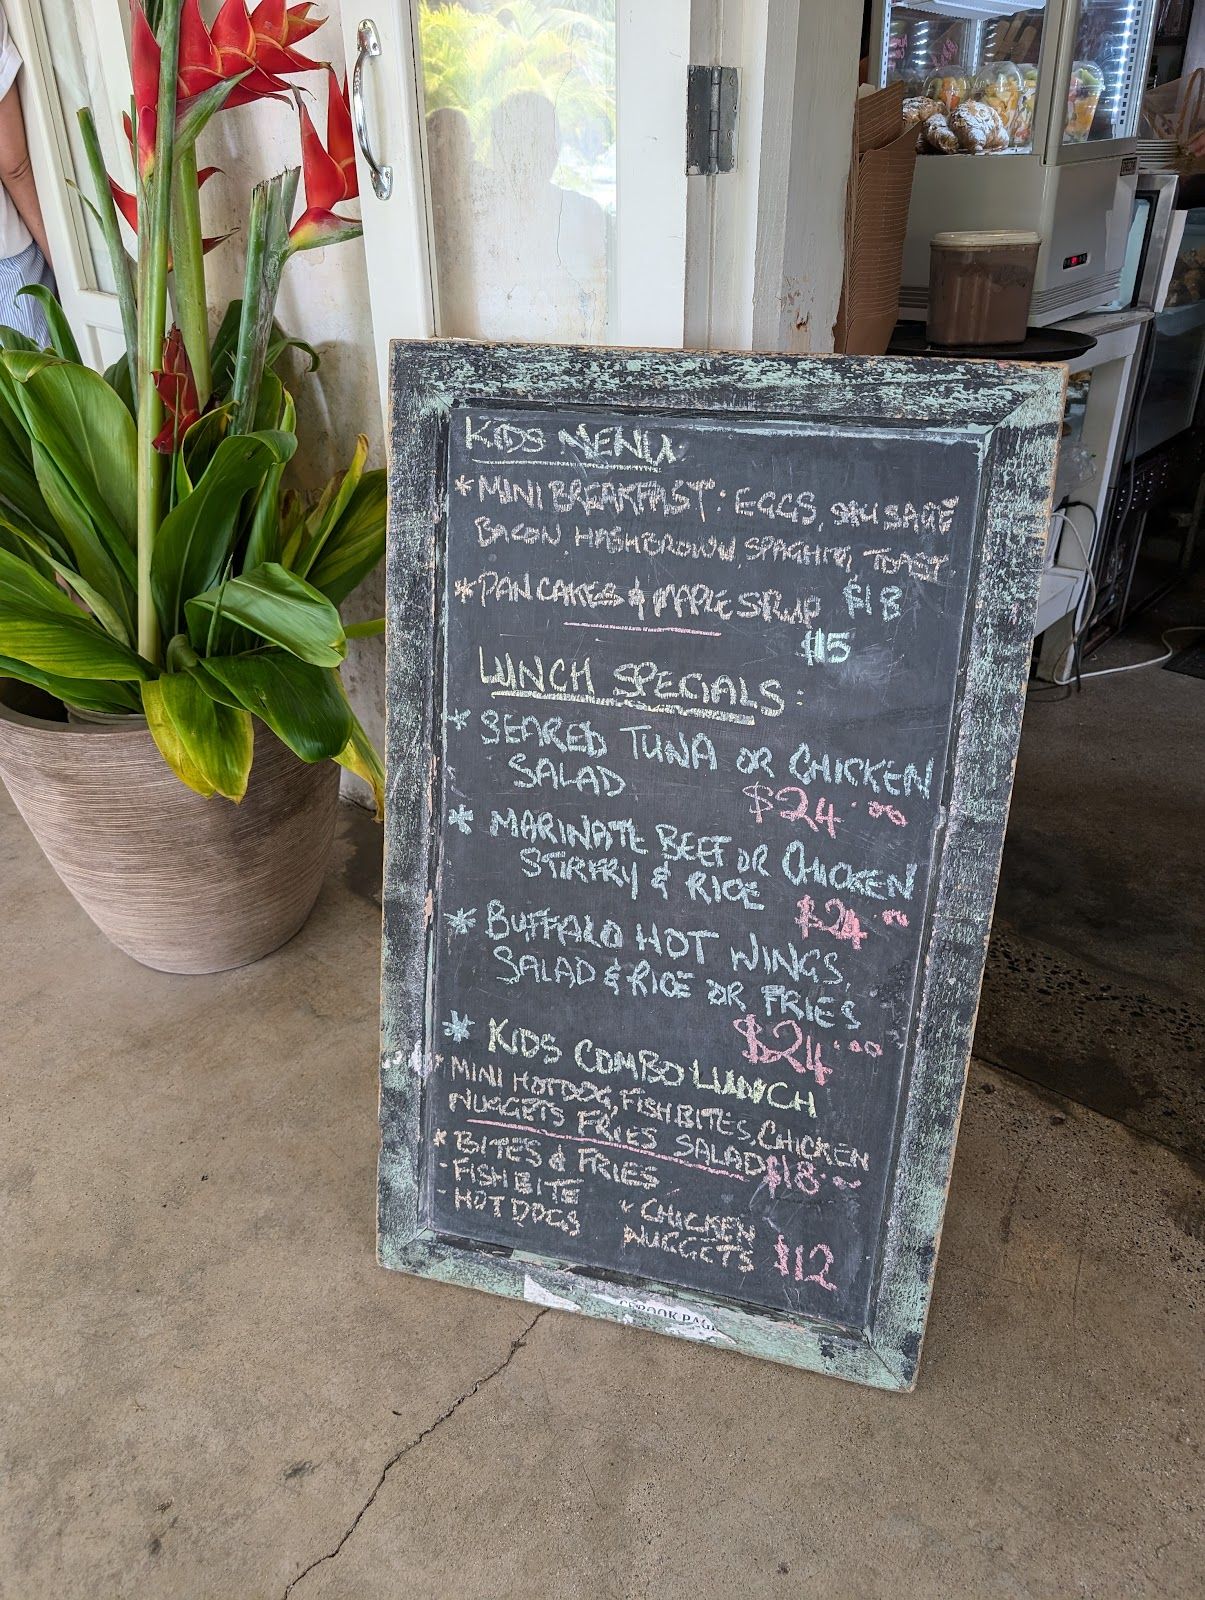 KIDS MENU
* MINI BREAKFAST: EGGS, SAUSAGE
BACON, HASHBROWN, SPAGHTTI, TOAST
* PANCAKES & MAPLE SRUP $18
$15
LUNCH SPECIALS:
* SEARED TUNA OR CHICKEN
SALAD $24.00
* MARINATE BEEF OR CHICKEN
STIRFRY & RICE $24.00
* BUFFALO HOT WINGS,
SALAD & RICE OR FRIES
$24.00
* KIDS COMBO LUNCH
* MINI HOTDOG, FISH BITES, CHICKEN
NUGGETS FRIES SALAD $18.00
* BITES & FRIES
- FISH BITE
- HOT DOGS
* CHICKEN
NUGGETS $12